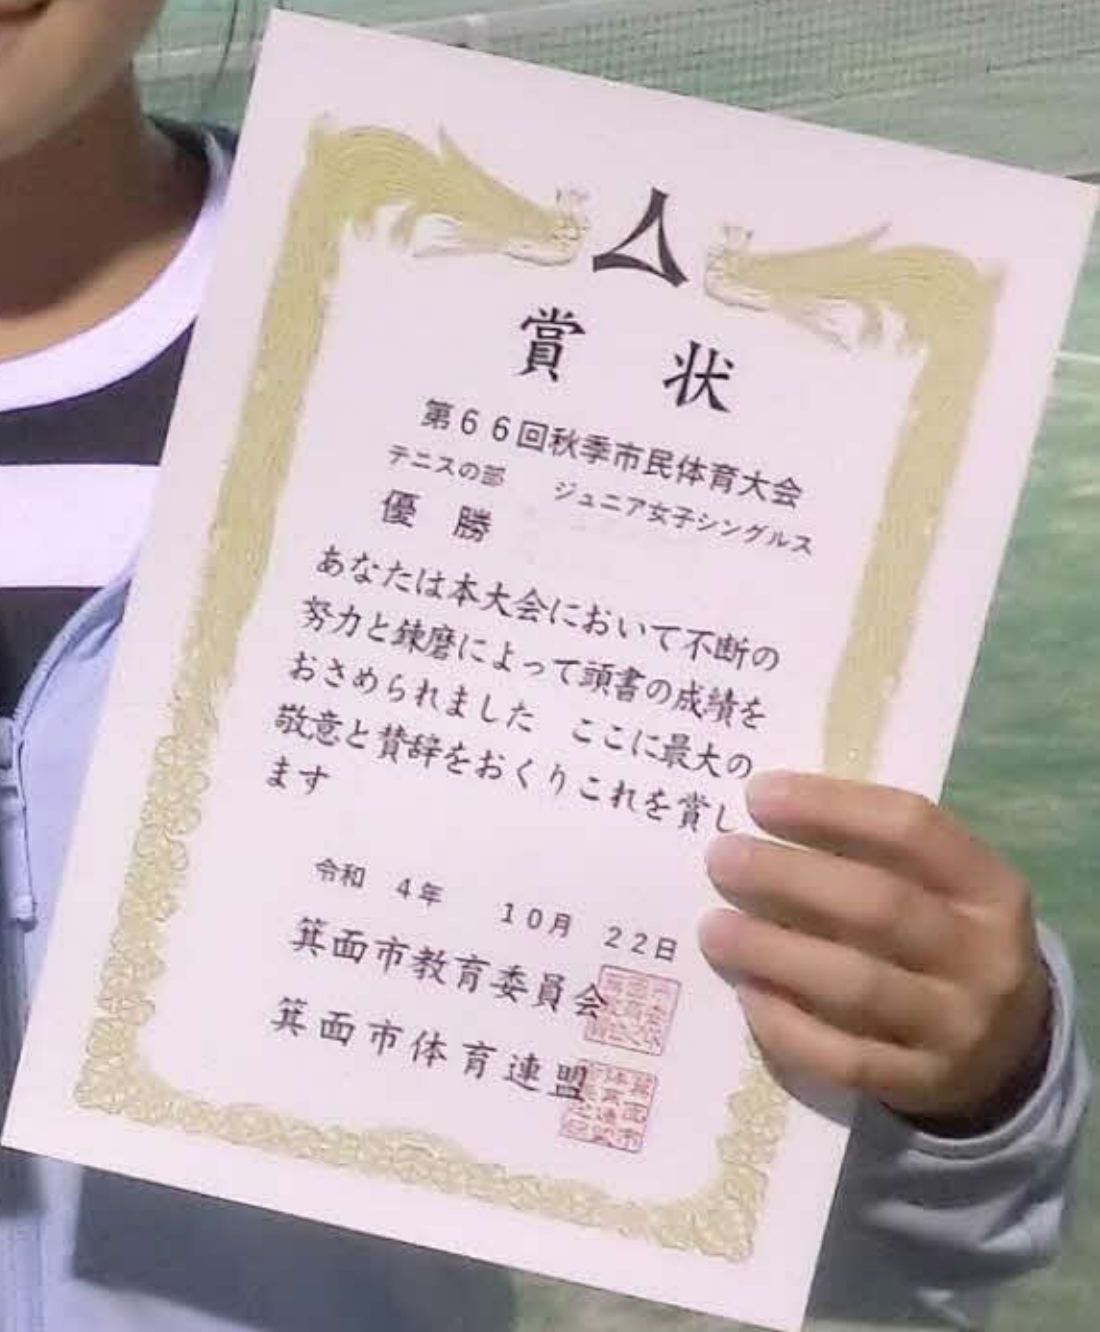 賞状
第66回秋季市民体育大会
テニスの部 ジュニア女子シングルス
優勝
あなたは本大会において不断の
努力と錬磨によって頭書の成績を
おさめられました ここに最大の
敬意と賛辞をおくりこれを賞し
ます
令和 4年 10月 22日
箕面市教育委員会
箕面市体育連盟